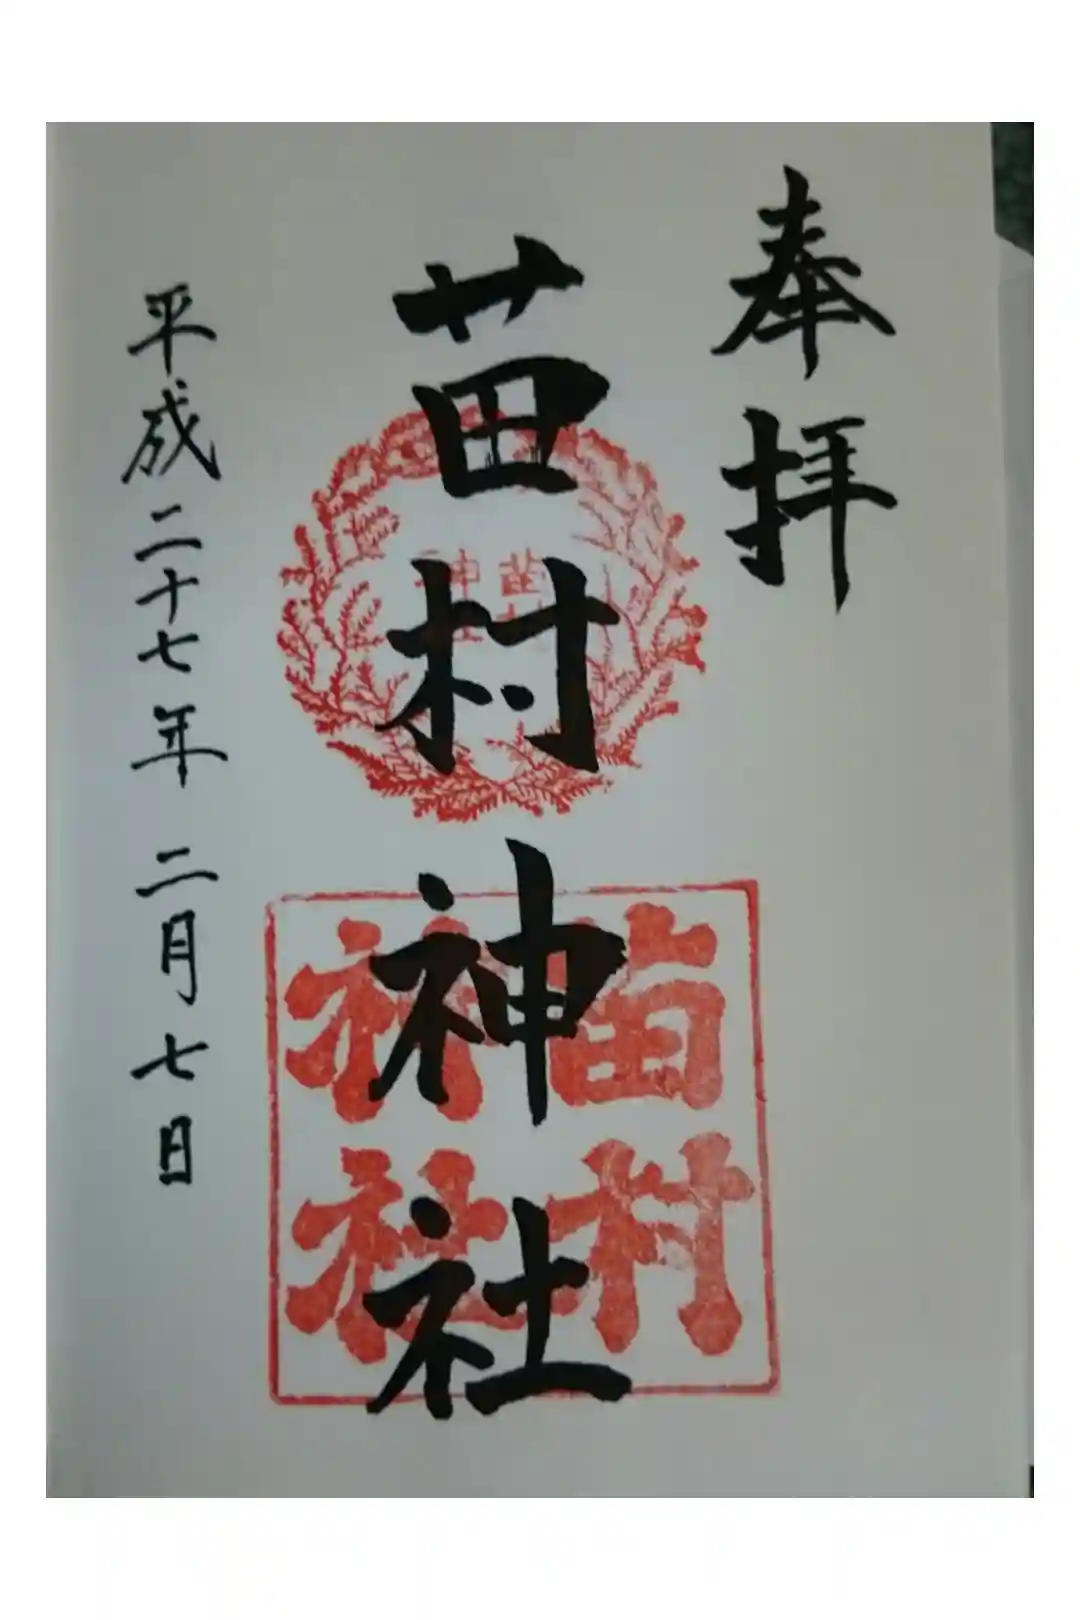 奉拝
苗村神社
苗村
神社
苗村
神社
平成二十七年二月七日